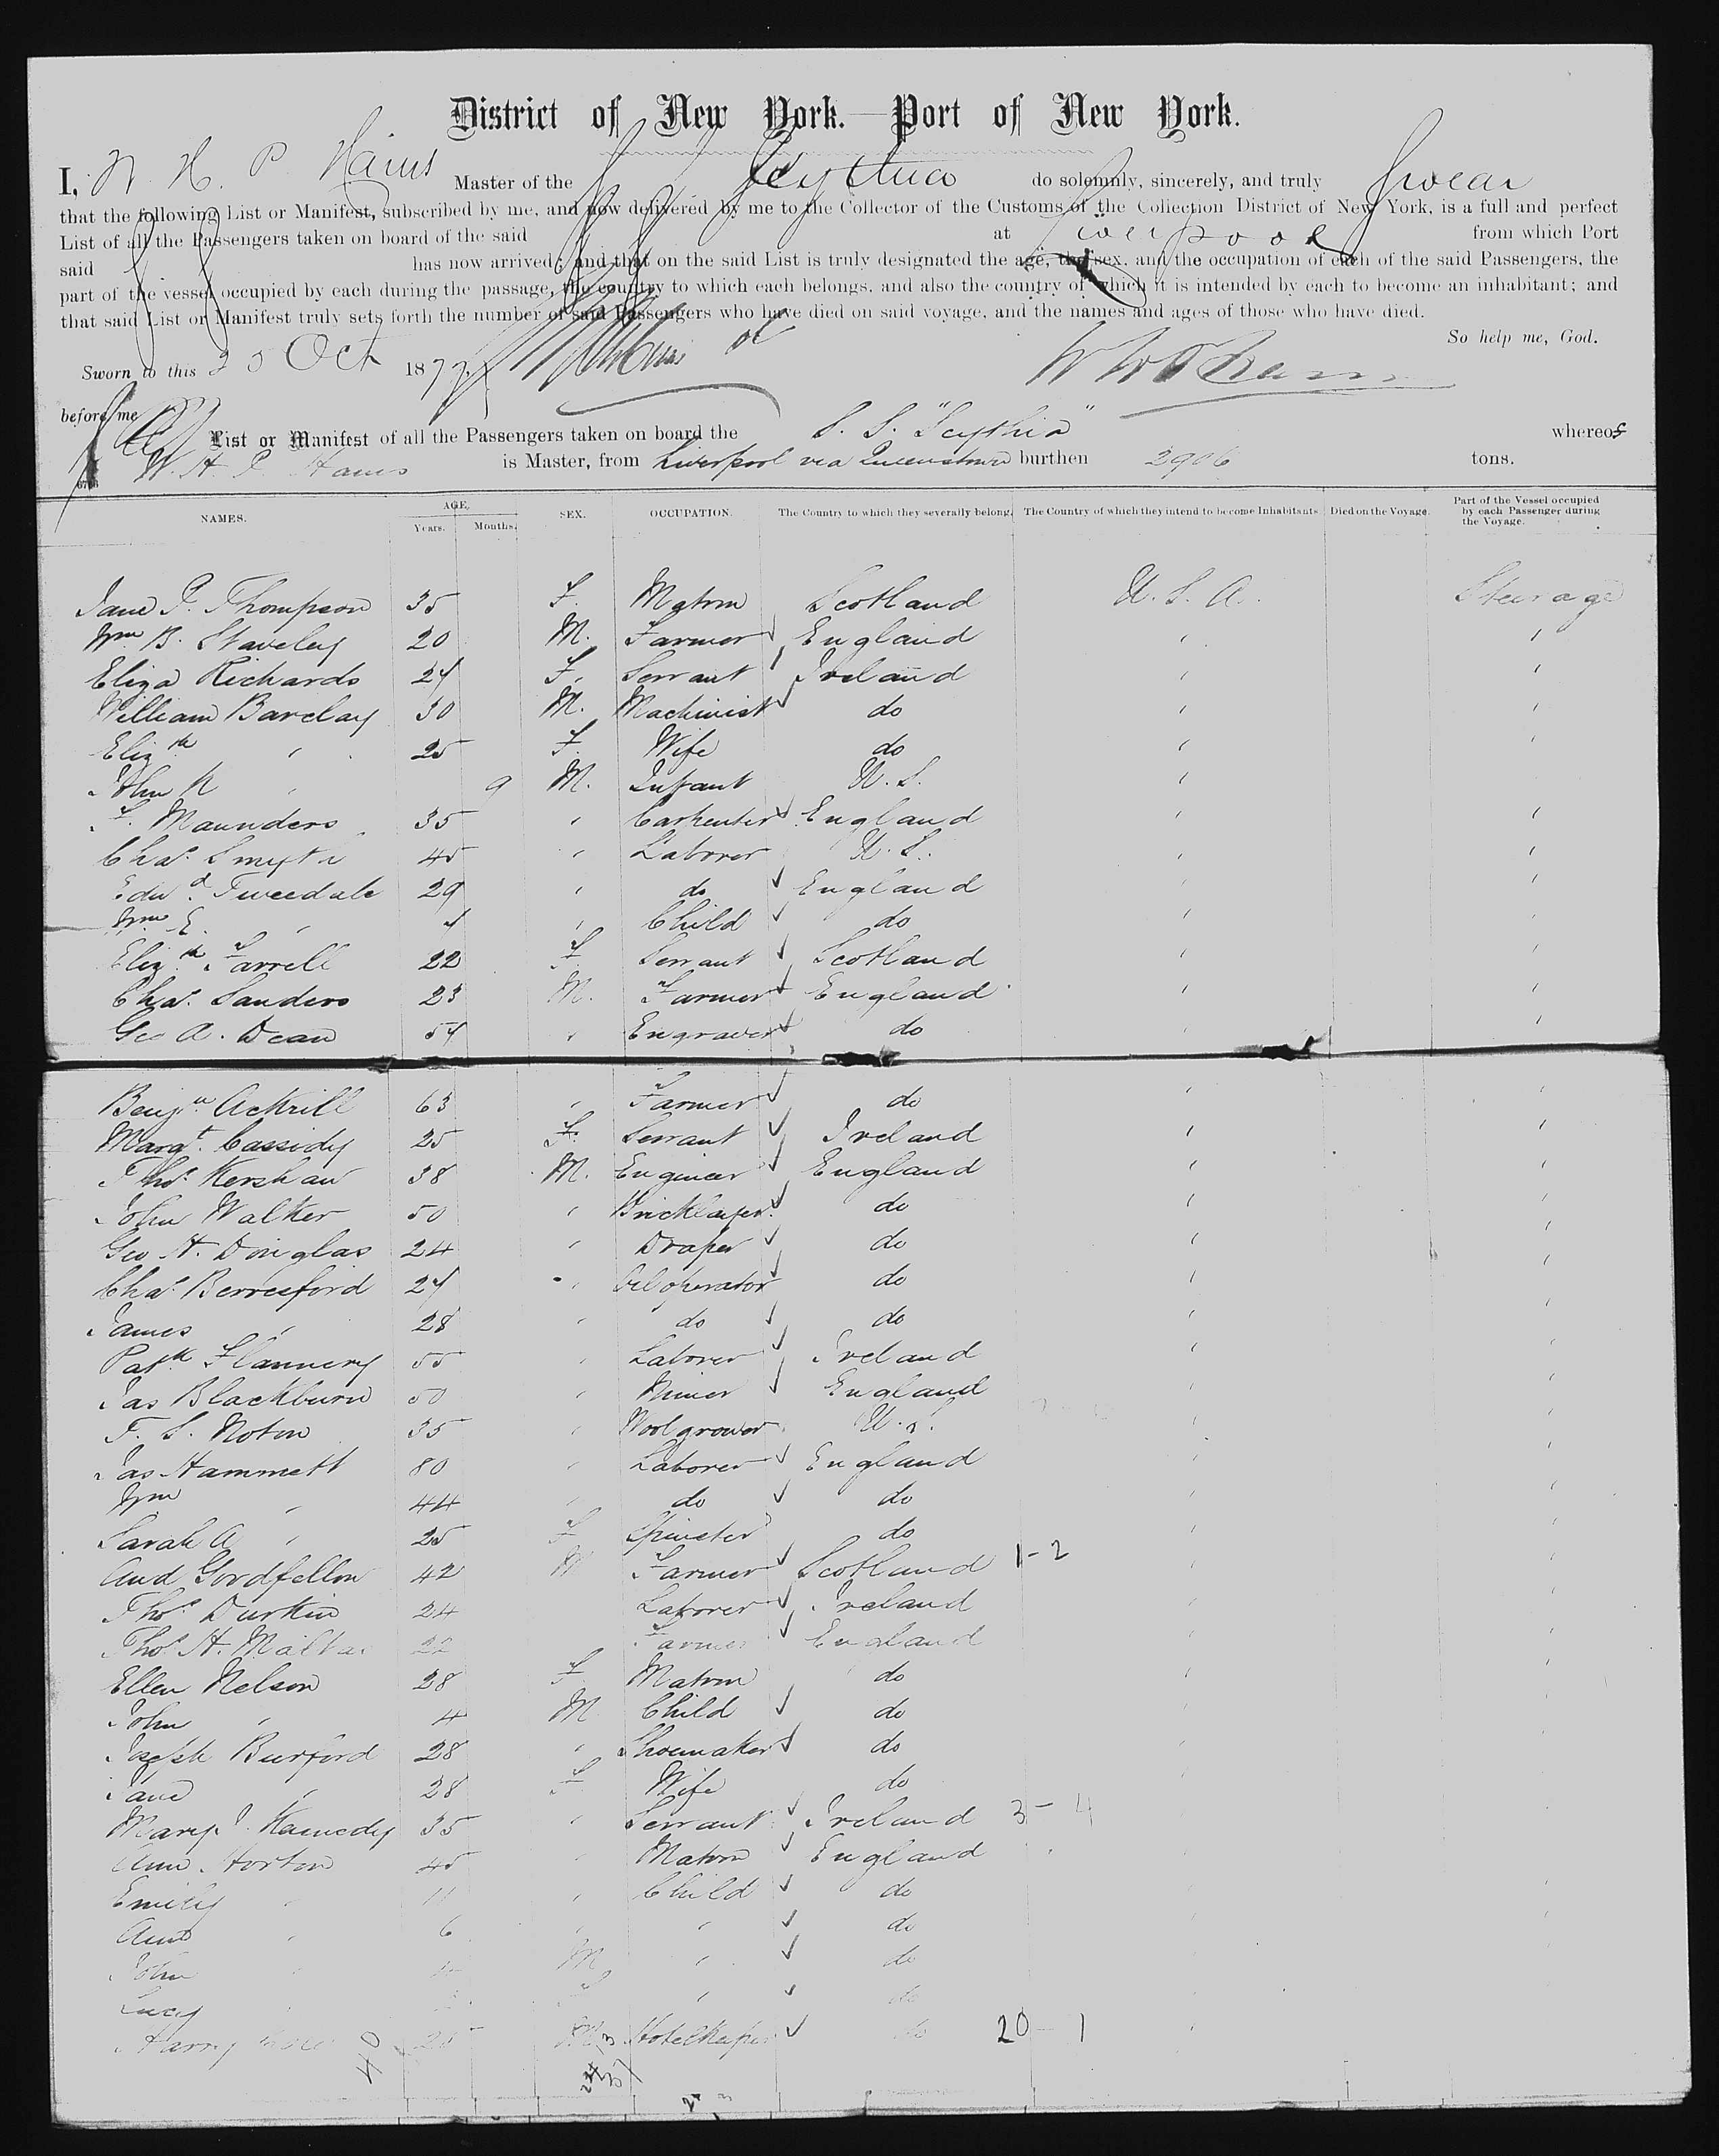 District of New York.—Port of New York.
I, W. H. P. Hains Master of the Scythia do solemnly, sincerely, and truly swear
that the following List or Manifest, subscribed by me, and now delivered by me to the Collector of the Customs of the Collection District of New York, is a full and perfect
List of all the Passengers taken on board of the said at Liverpool from which Port
said has now arrived; and that on the said List is truly designated the age, the sex, and the occupation of each of the said Passengers, the
part of the vessel occupied by each during the passage, the country to which each belongs, and also the country of which it is intended by each to become an inhabitant; and
that said List or Manifest truly sets forth the number of said Passengers who have died on said voyage, and the names and ages of those who have died.
So help me, God.
Sworn to this 25 Oct 187
before me
List or Manifest of all the Passengers taken on board the S. S. "Scythia" whereof
W. H. P. Hains is Master, from Liverpool via Queenstown burthen 2906 tons.
NAMES. AGE. Years. Months. SEX. OCCUPATION. The Country to which they severally belong. The Country of which they intend to become Inhabitants Died on the Voyage. Part of the Vessel occupied by each Passenger during the Voyage.
Jane P. Thompson 35 F. Matron Scotland U. S. A. Steerage
Wm B. Staveley 20 M. Farmer England "
Eliza Richards 24 F. Servant Ireland "
William Barclay 30 M. Machinist do "
Elizth " 25 F. Wife do "
John R " 9 M. Infant U. S. "
F. Maunders 35 " Carpenter England "
Chas. Smyth 45 " Laborer U. S. "
Edwd. Tweedale 29 " do England "
Wm E. " 4 " Child do "
Elizth Farrell 22 F. Servant Scotland "
Chas. Sanders 23 M. Farmer England "
Geo A. Dean 54 " Engraver do "
Benjn Ackrill 63 " Farmer do "
Margt. Cassidy 25 F. Servant Ireland "
Thos. Kershaw 38 M. Engineer England "
John Walker 50 " Bricklayer do "
Geo H. Douglas 24 " Draper do "
Chas. Berresford 24 " Tel operator do "
James " 28 " do do "
Patk Flannery 55 " Laborer Ireland "
Jas Blackburn 50 " Miner England "
F. S. Noton 35 " Wool grower U. S. "
Jas Hammett 80 " Laborer England "
Wm " 44 " do do "
Sarah A " 25 F Spinster do "
And Goodfellow 42 M Farmer Scotland 1-2 "
Thos. Durkin 24 Laborer Ireland "
Thos. H. 22 Farmer England "
Ellen Nelson 28 F Matron do "
John " 4 M Child do "
Joseph Burford 28 " Shoemaker do "
Jane " 28 F Wife do "
Mary J. Kennedy 35 " Servant Ireland 3-4 "
Ann Horton 45 " Matron England "
Emily " 11 " Child do "
Ann " 6 " " do "
John " M " do "
Lucy " " do "
Harry 25 M Hotelkeeper do 20-1 "